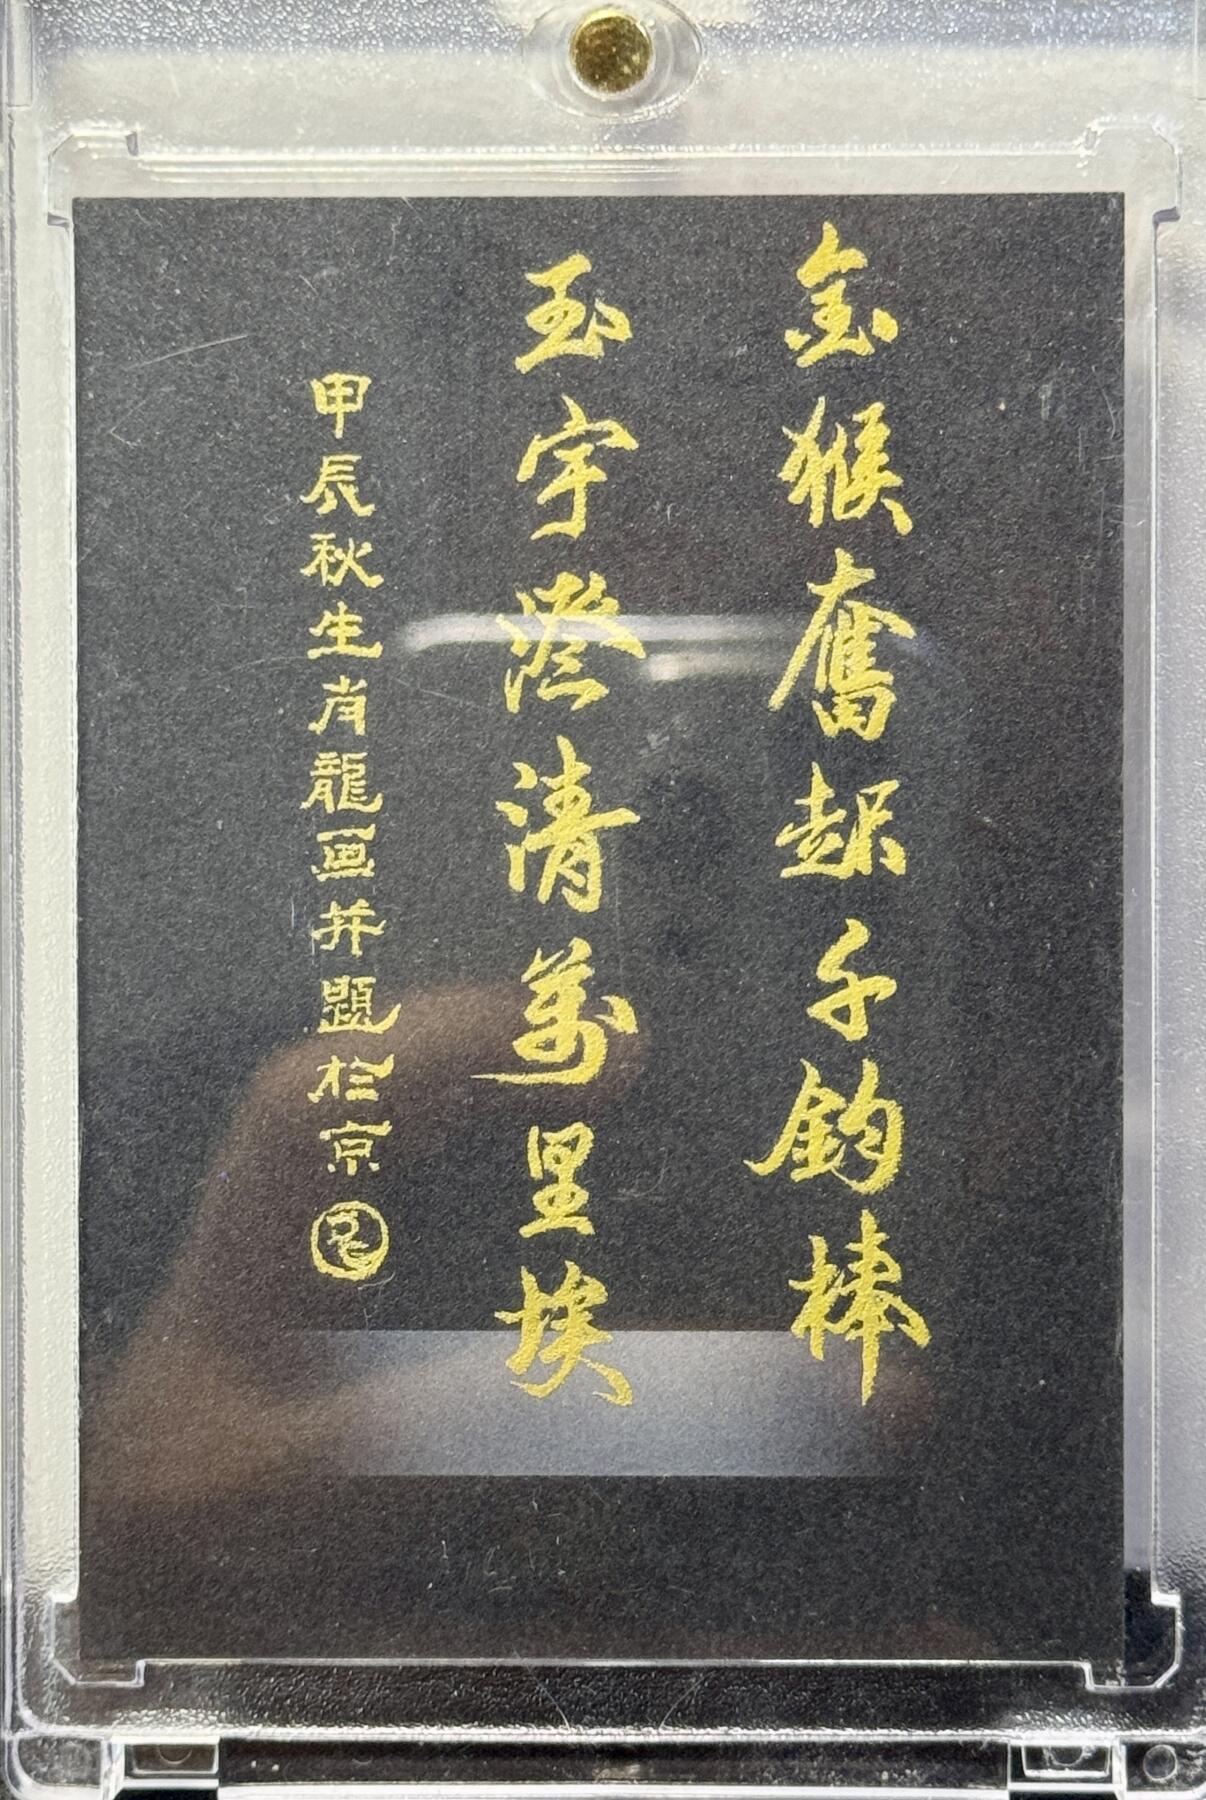 金猴奮起千鈞棒
玉宇澄清萬里埃
甲辰秋生肖龍画并題於京